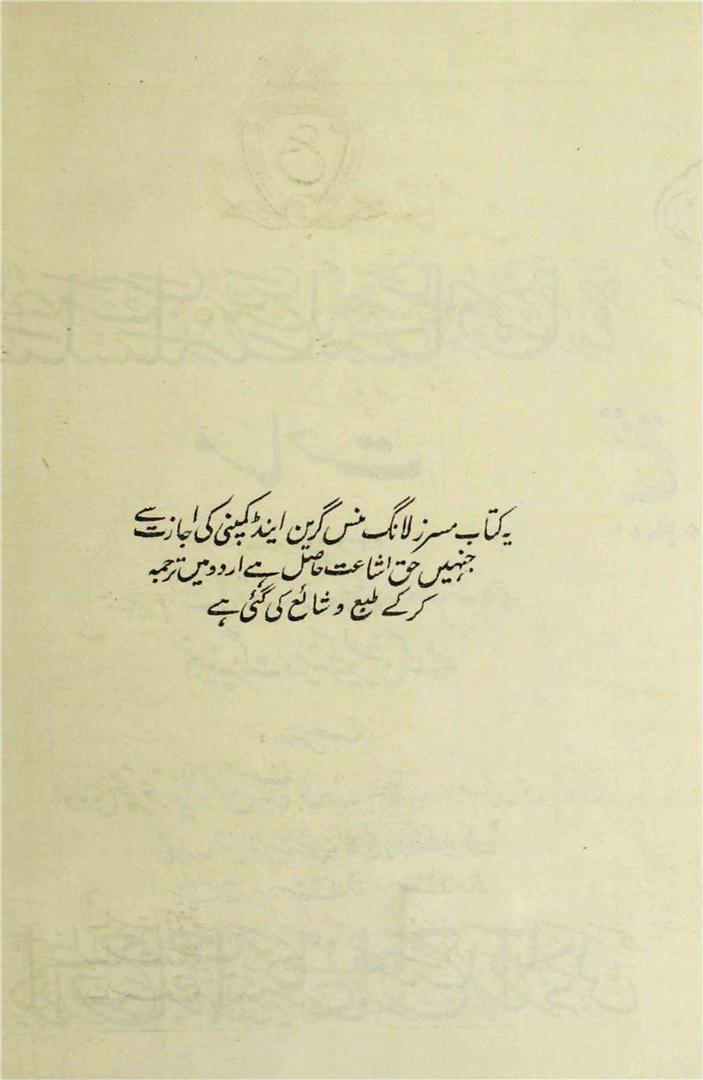 یہ کتاب مسرز لانگ منس گرین اینڈ کمپنی کی اجازت سے
جنہیں حق اشاعت حاصل ہے اردو میں ترجمہ
کر کے طبع و شائع کی گئی ہے